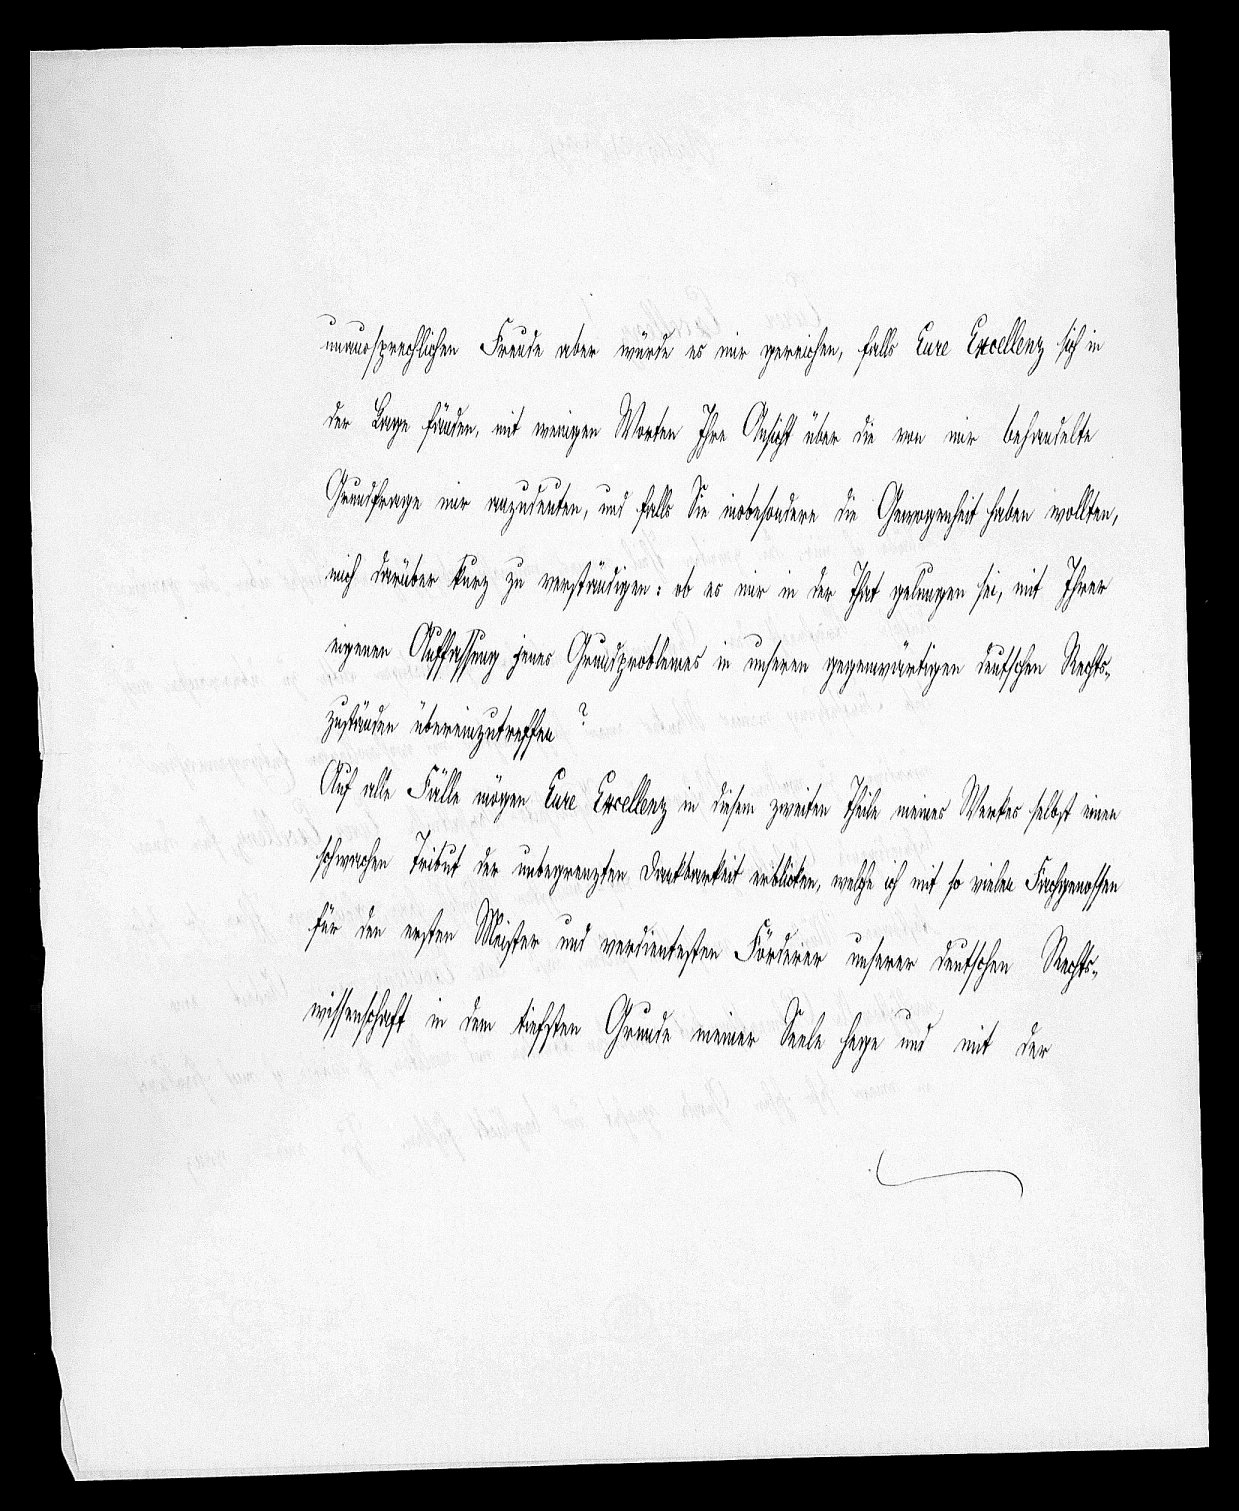 unaussprechlichen Freude aber würde es mir gereichen, falls Eure Excellenz sich in
der Lage fänden, mit wenigen Worten Ihre Ansicht über die von mir behandelte
Grundfrage mir anzudeuten, und falls Sie insbesondere die Gewogenheit haben wollten,
mich darüber kurz zu verständigen: ob es mir in der That gelungen sei, mit Ihrer
eigenen Auffassung jenes Grundproblemes in unseren gegenwärtigen deutschen Rechts-
zuständen übereinzutreffen?
Auf alle Fälle mögen Eure Excellenz in diesem zweiten Theile meines Werkes selbst einen
schwachen Tribut der unbegrenzten Dankbarkeit erblicken, welche ich mit so vielen Fachgenossen
für den ersten Meister und verdientesten Förderer unserer deutschen Rechts-
wissenschaft in dem tiefsten Grunde meiner Seele hege und mit der